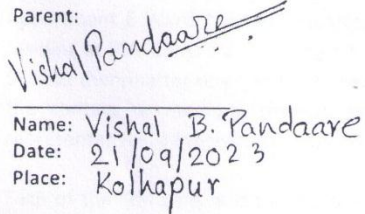 Parent:
Vishal Pandaare
Name: Vishal B. Pandaare
Date: 21/09/2023
Place: Kolhapur